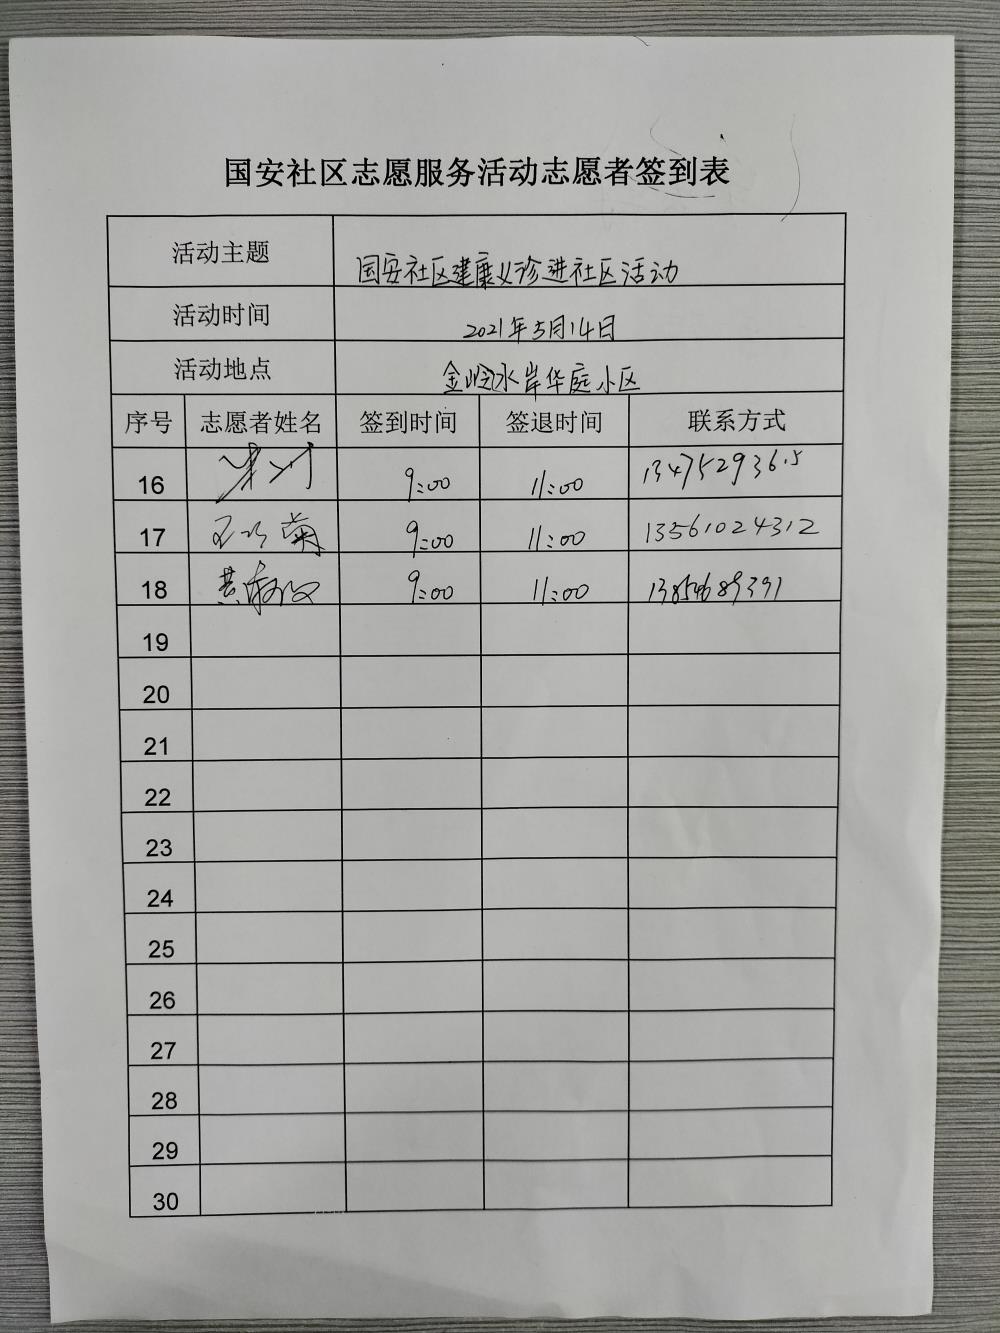 国安社区志愿服务活动志愿者签到表
活动主题 国安社区建康义诊进社区活动
活动时间 2021年5月14日
活动地点 金岭水岸华庭小区
序号 志愿者姓名 签到时间 签退时间 联系方式
16 9:00 11:00 13475293615
17 9:00 11:00 13561024312
18 9:00 11:00 13854689391
19
20
21
22
23
24
25
26
27
28
29
30